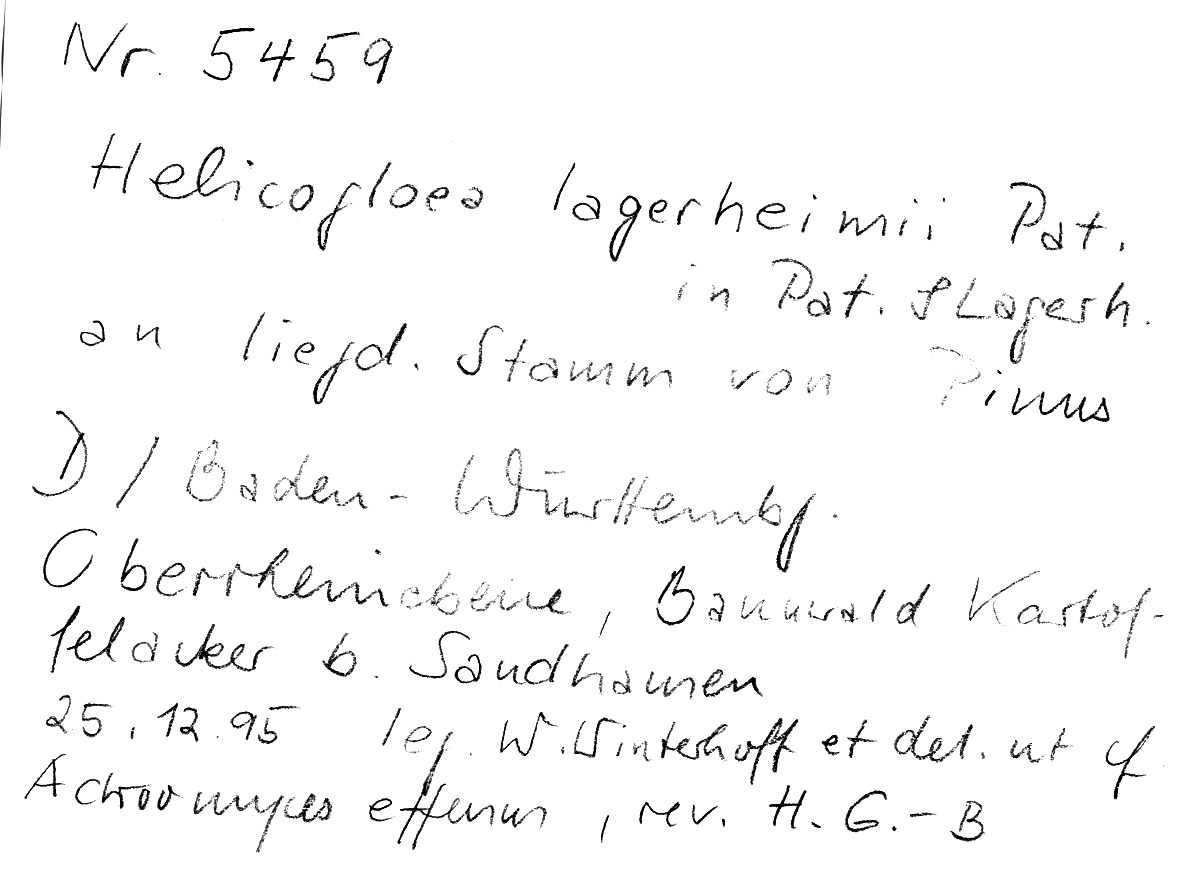 Nr. 5459
Helicogloea lagerheimii Pat.
in Pat. & Lagerh.
an liegd. Stamm von Pinus
D / Baden-Württembg.
Oberrheinebene, Bannwald Kartof-
felacker b. Sandhausen
25.12.95 leg. W. Winterhoff et det. ut cf
Achroomyces effusus, rev. H. G.-B